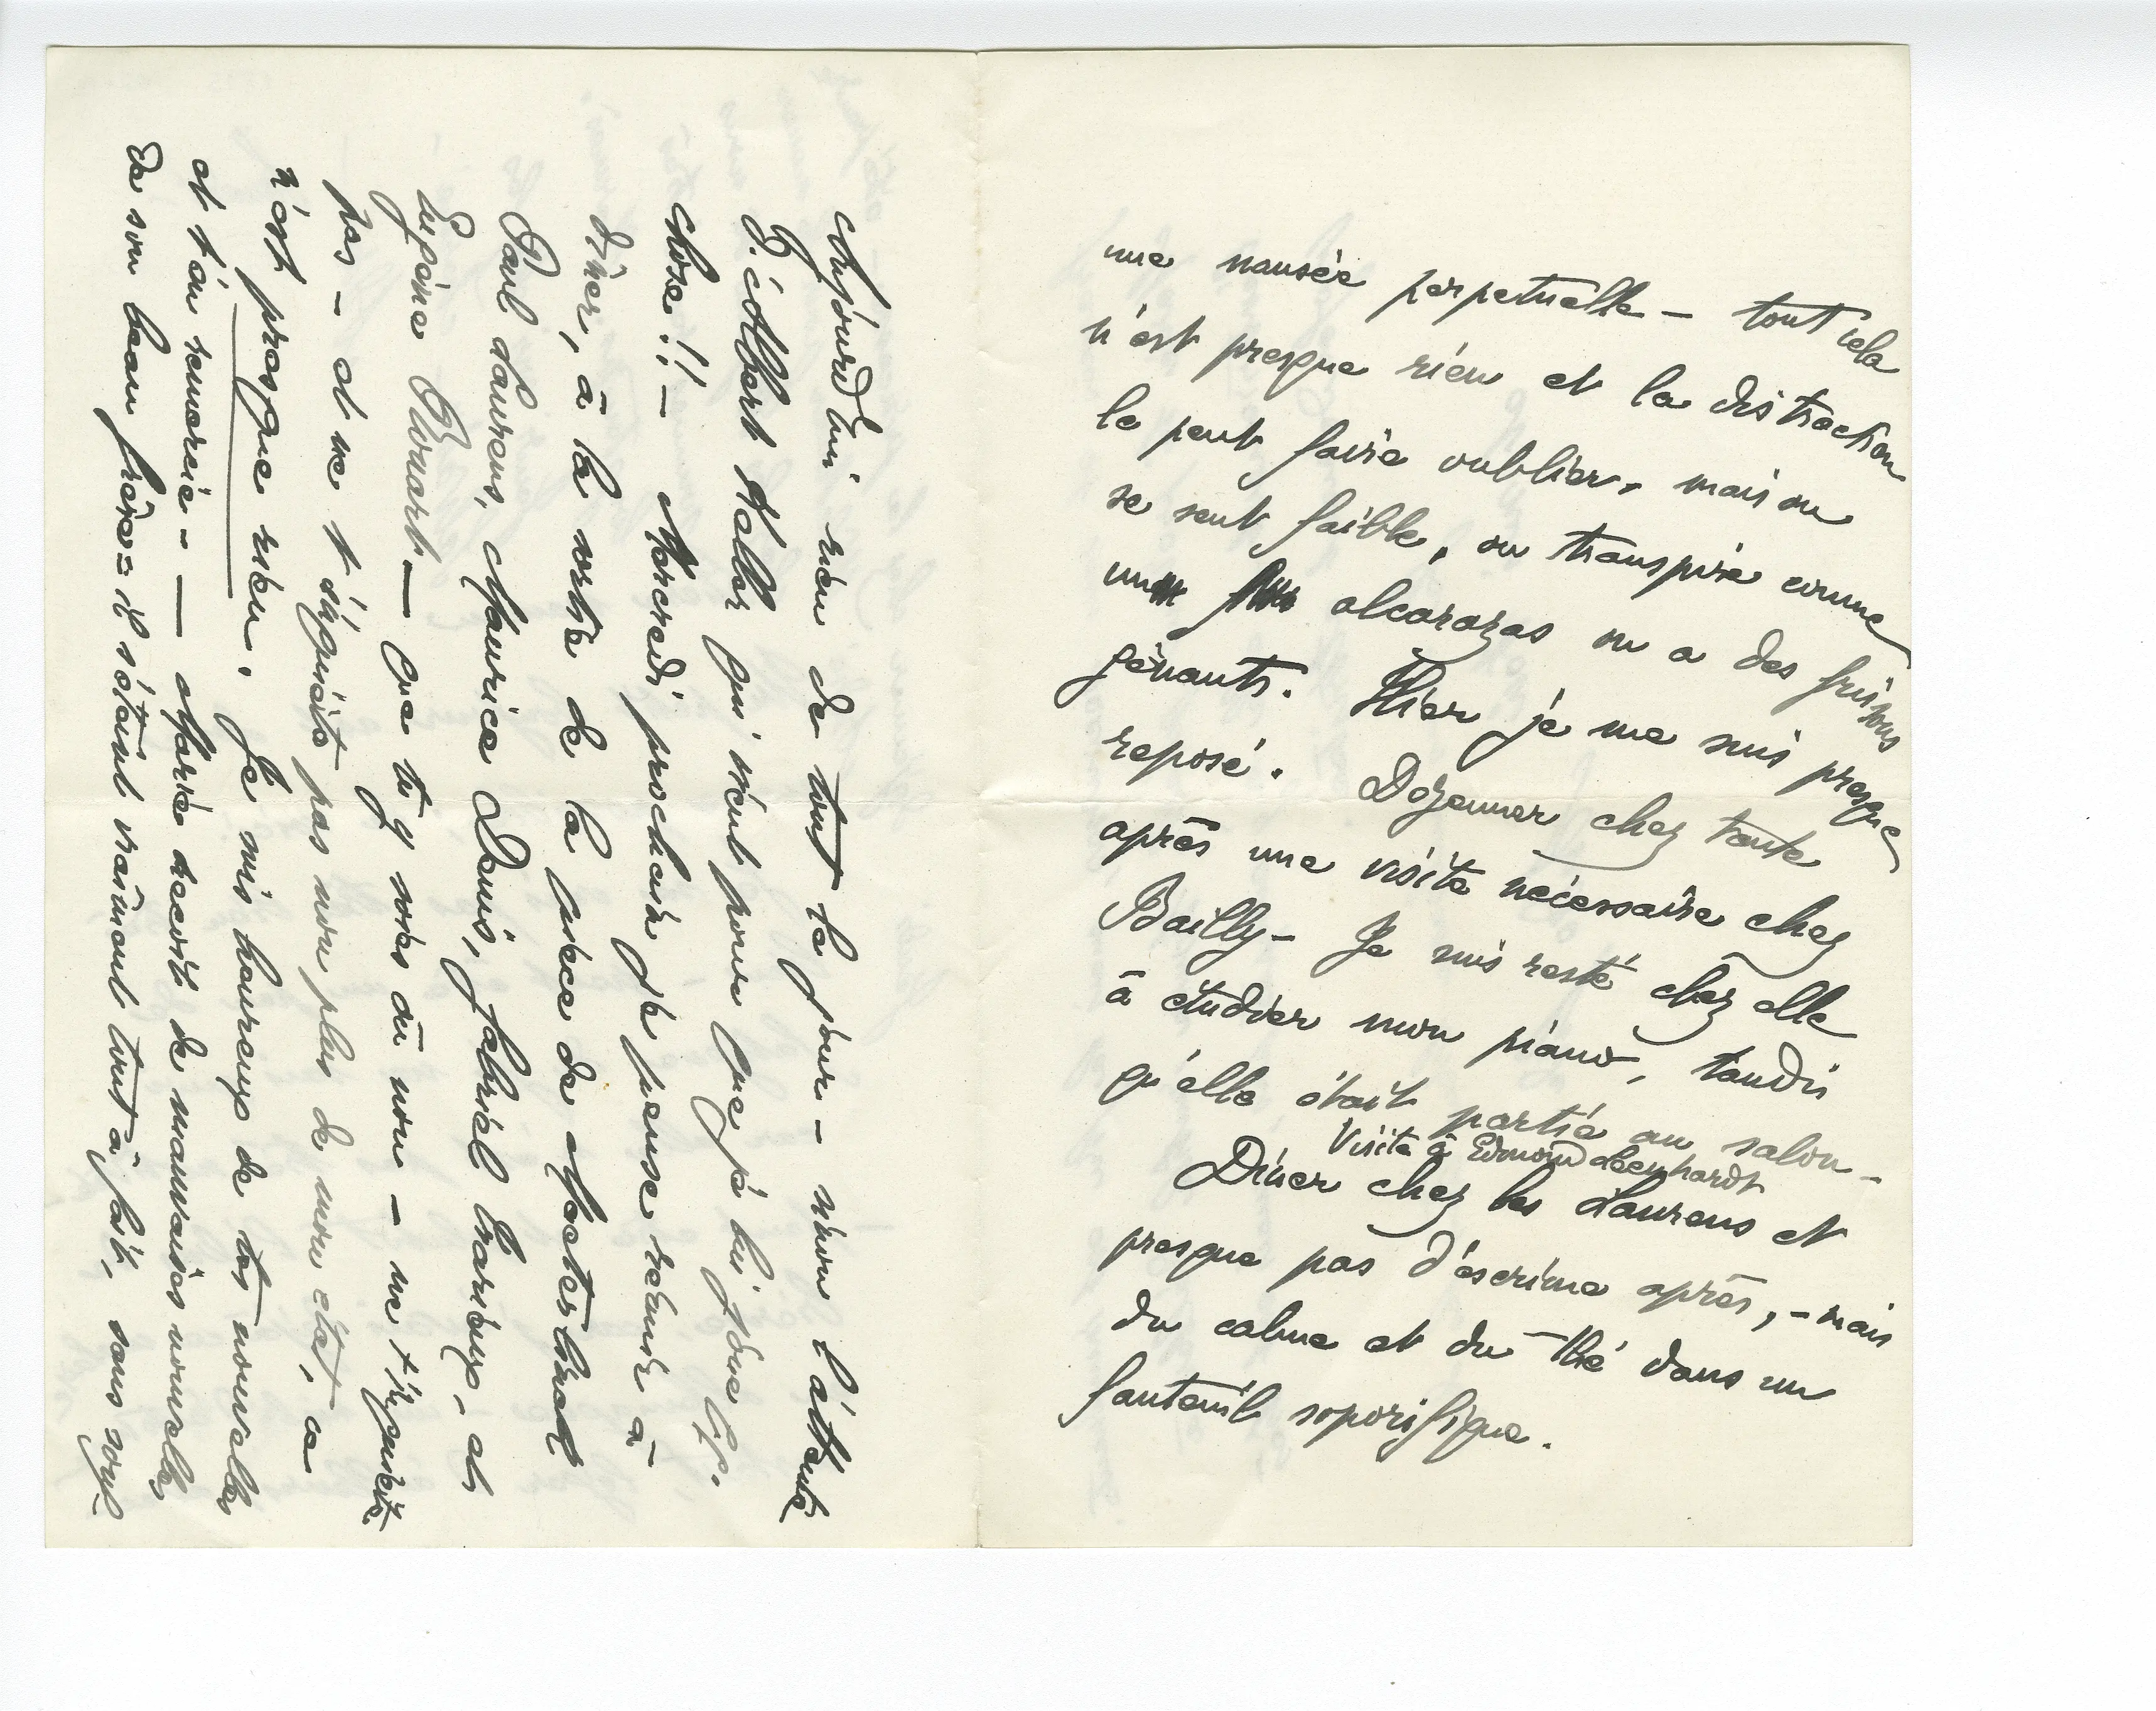 une nausée perpetuelle – tout cela
n'est presque rien et la distraction
le peut faire oublier, mais on
se sent faible, on transpire comme
un alcarazas on a des frissons
gênants. Hier je me suis presque
reposé. Dejeuner chez tante
après une visite nécessaire chez
Bailly – Je suis resté chez elle
à étudier mon piano, tandis
qu'elle était partie au salon –
Visite à Edmond
Dîner chez les Laurens et
presque pas d'escrime après, – mais
du calme et du thé dans un
fauteuil soporifique.
Aujourd'hui rien de tout le jour – sinon l'attente
d'Albert qui vient pour que je lui joue
chose!! – Mercredi prochain je pense réunir à
dîner, à la sortie de la pièce de Maeterlinck
Paul Laurens, Maurice Denis, Gabriel Trarieux, et
Eugène Rouart – que tu y sois ou non – ne t'inquiète
pas – et ne t'inquiète pas non plus de mon état, ce
n'est presque rien. Je suis heureux de tes nouvelles
et t'en remercie – — Marie reçoit de mauvaises nouvelles
de son beau frère = il s'éteint vraiment tout à fait, sans